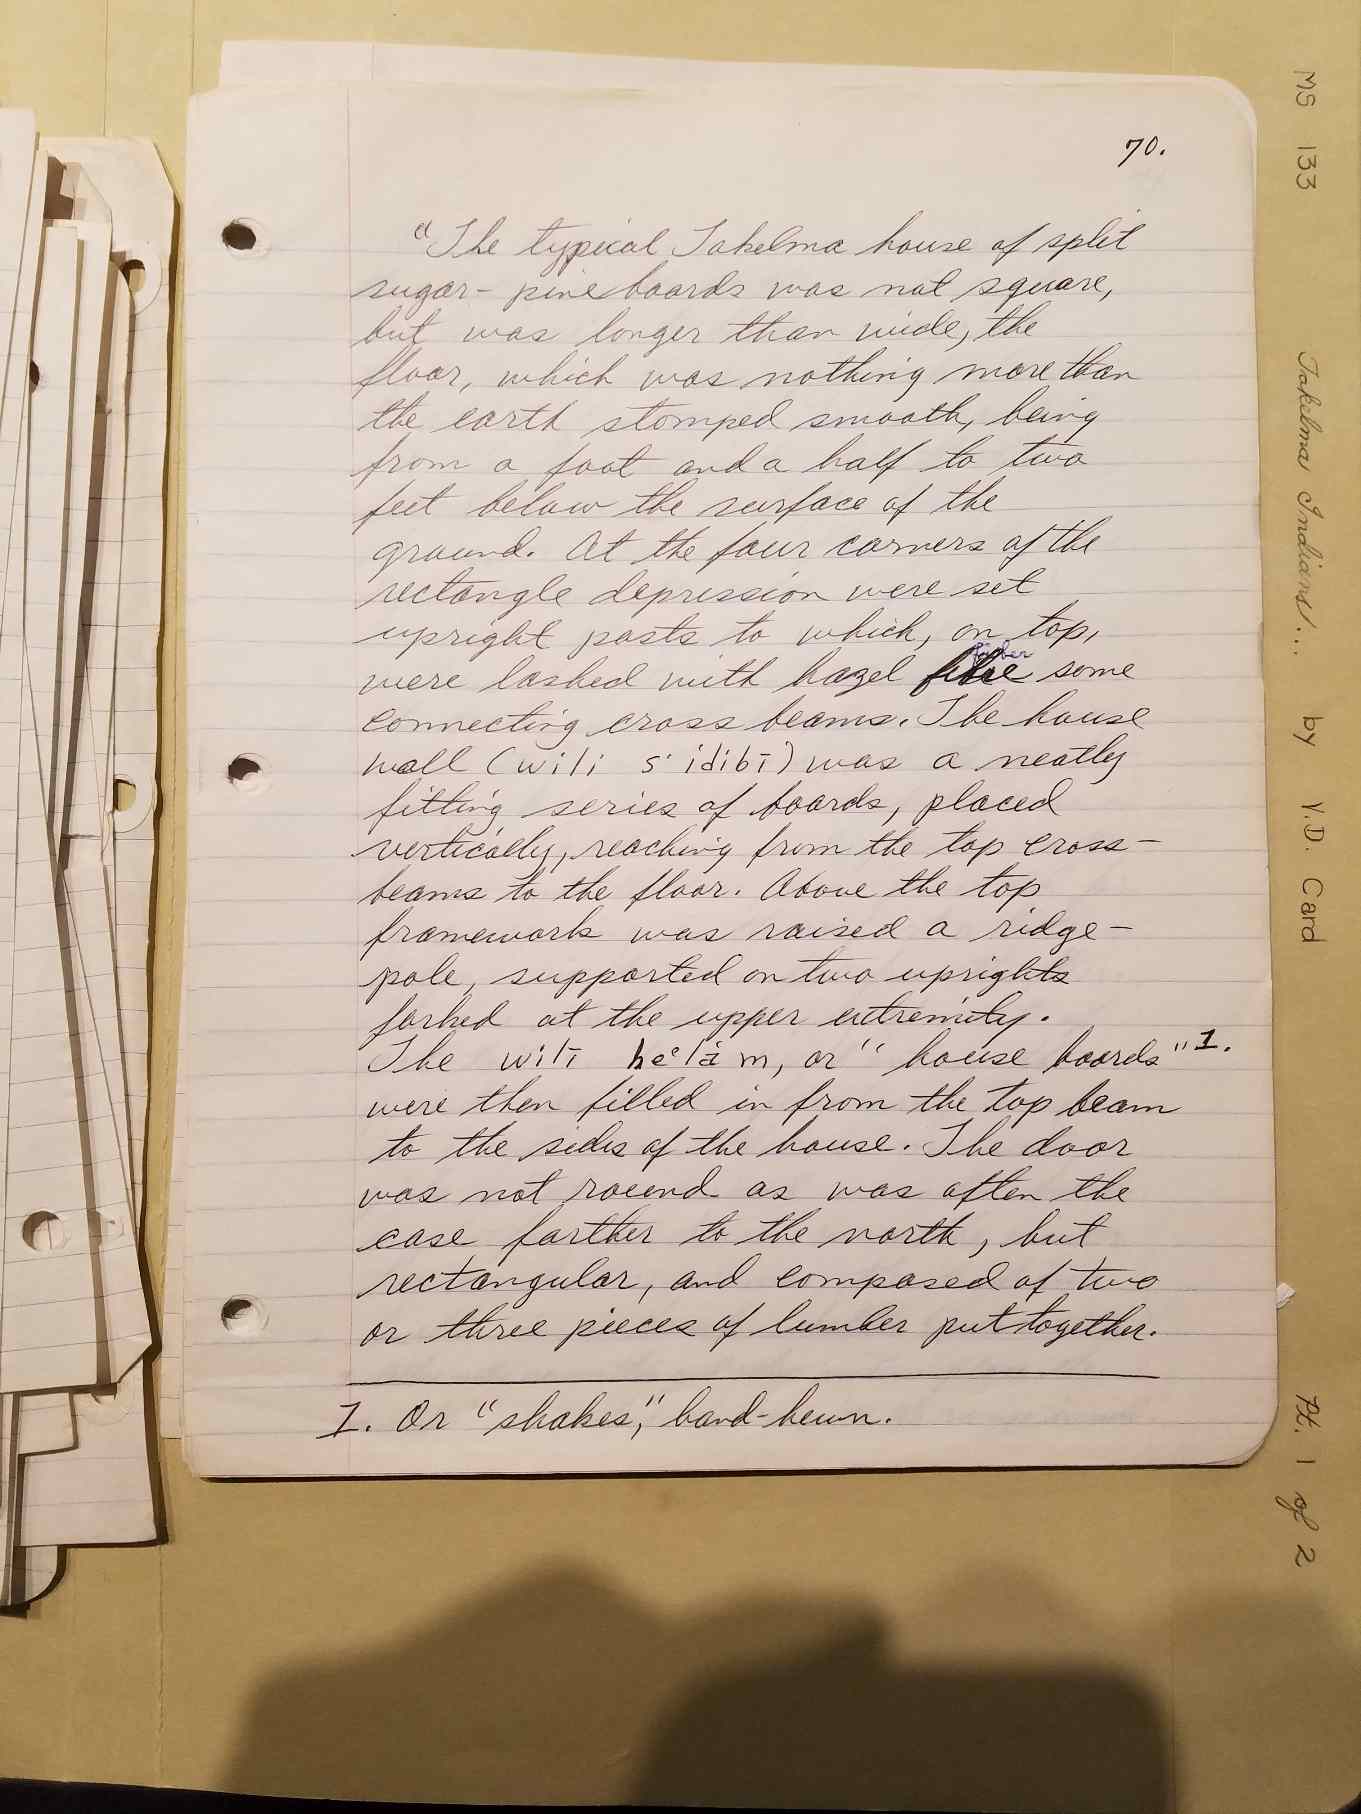 70.
"The typical Takelma house of split
sugar-pine boards was not square,
but was longer than wide, the
floor, which was nothing more than
the earth stomped smooth, being
from a foot and a half to two
feet below the surface of the
ground. At the four corners of the
rectangle depression were set
upright posts to which, on top,
fiber
were lashed with hazel some
connecting cross beams. The house
wall (wili s· idibī) was a neatly
fitting series of boards, placed
vertically, reaching from the top cross-
beams to the floor. Above the top
framework was raised a ridge-
pole, supported on two uprights
forked at the upper extremity.
The wilī hēᵉlā́m, or "house boards" 1.
were then filled in from the top beam
to the sides of the house. The door
was not round as was often the
case farther to the north, but
rectangular, and composed of two
or three pieces of lumber put together.
1. Or "shakes," hand-hewn.
MS 133 Takelma Indians... by V.D. Card Pt. 1 of 2